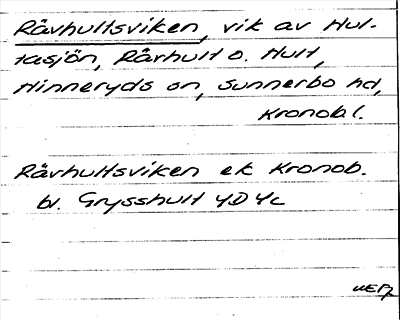 Råvhultsviken, vik av Hul-
tasjön, Råvhult o. Hult,
Hinneryds sn, Sunnerbo hd,
Kronob l.
Råvhultsviken ek Kronob.
bl. Grysshult 4D 4c